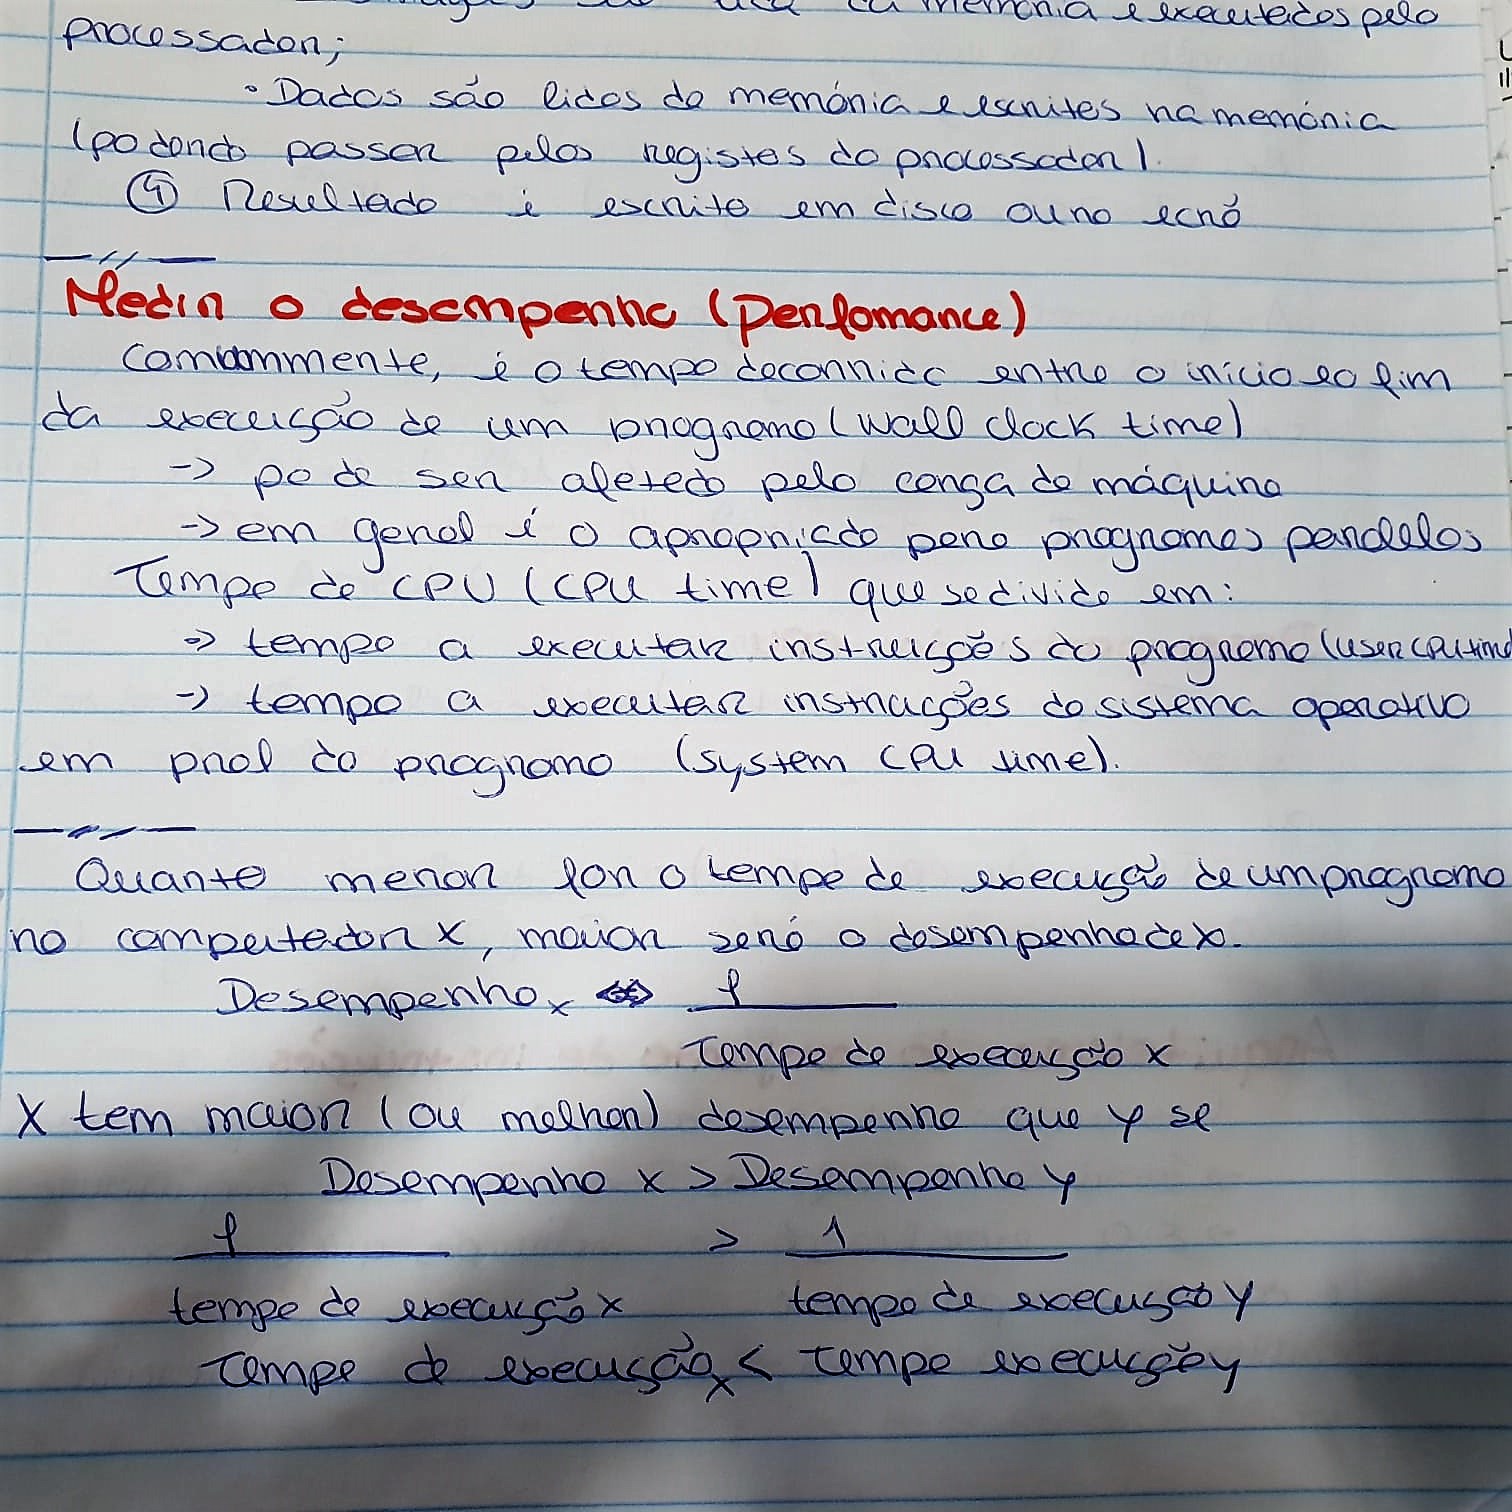 memória e executados pelo
processador;
• Dados são lidos da memória e escritos na memória
(podendo passar pelos registos do processador).
④ Resultado é escrito em disco ou no ecrã
— // —
Medir o desempenho (Perfomance)
Comummente, é o tempo decorrido entre o início e o fim
da execução de um programa (wall clock time)
-> pode ser afetado pela carga da máquina
-> em geral é o apropriado para programas paralelos
Tempo de CPU (CPU time) que se divide em:
-> tempo a executar instruções do programa (user CPU time
-> tempo a executar instruções do sistema operativo
em prol do programa (system CPU time).
— // —
Quanto menor for o tempo de execução de um programa
no computador X, maior será o desempenho de X.
Desempenho x <=> 1
Tempo de execução x
X tem maior (ou melhor) desempenho que y se
Desempenho x > Desempenho y
1 > 1
tempo de execução x tempo de execução y
Tempo de execução x < Tempo execução y